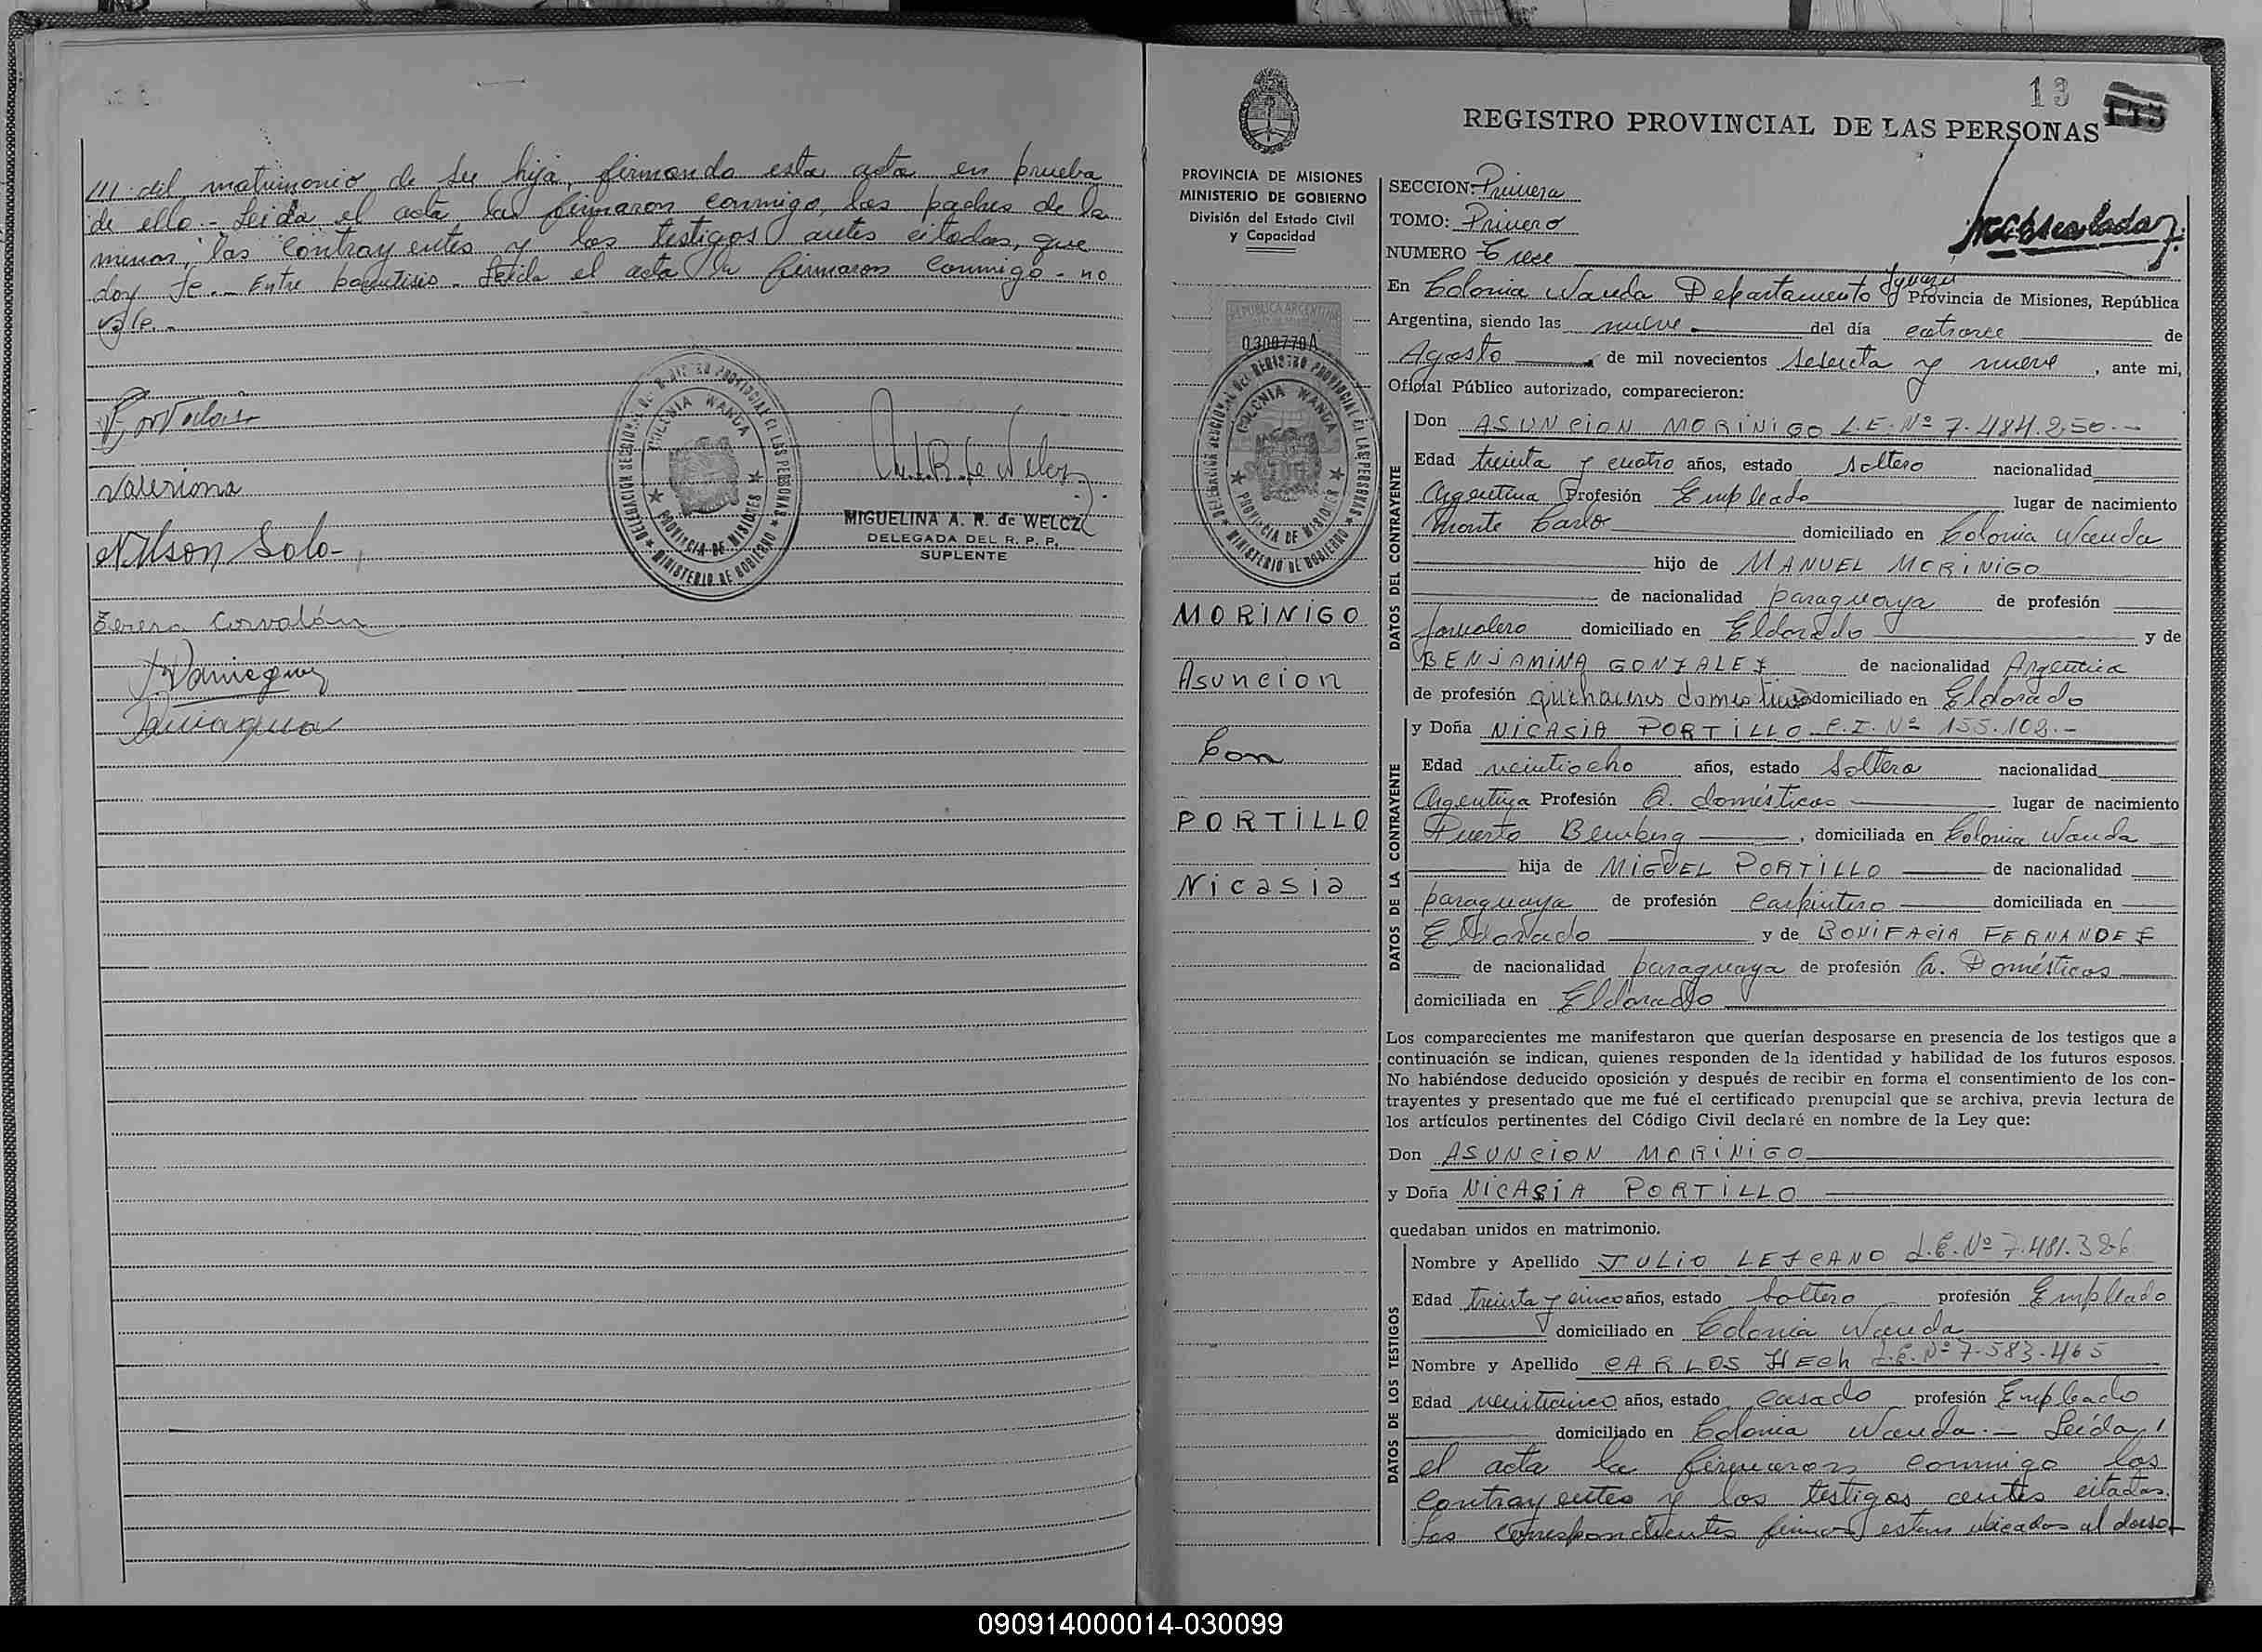 /// del matrimonio de su hija, firmando esta acta en prueba
de ello.- Leida el acta la firmaron conmigo, los padres de la
menor, los contrayentes y los testigos antes citados, que
doy Fe.- Entre parentisis - Leida el acta la firmaron conmigo - no
vale.-
Valeriona
Nilson Solo-
Teresa Corvalán
DELEGACION SECCIONAL DEL REGISTRO PROVINCIAL DE LAS PERSONAS
COLONIA WANDA
PROVINCIA DE MISIONES
MINISTERIO DE GOBIERNO
MIGUELINA A. R. de WELCZ
DELEGADA DEL R. P. P.
SUPLENTE
13
REGISTRO PROVINCIAL DE LAS PERSONAS
PROVINCIA DE MISIONES
MINISTERIO DE GOBIERNO
División del Estado Civil
y Capacidad
REPUBLICA ARGENTINA
0300770A
DELEGACION SECCIONAL DEL REGISTRO PROVINCIAL DE LAS PERSONAS
COLONIA WANDA
PROVINCIA DE MISIONES
MINISTERIO DE GOBIERNO
MORINIGO
Asuncion
Con
PORTILLO
Nicasia
SECCION: Primera
TOMO: Primero
NUMERO Trece
En Colonia Wanda Departamento Iguazú Provincia de Misiones, República
Argentina, siendo las nueve del día catorce de
Agosto de mil novecientos sesenta y nueve, ante mi,
Oficial Público autorizado, comparecieron:
DATOS DEL CONTRAYENTE
Don ASUNCION MORINIGO L.E. Nº 7.484.250.-
Edad treinta y cuatro años, estado soltero nacionalidad
Argentina Profesión Empleado lugar de nacimiento
Monte Carlo domiciliado en Colonia Wanda
hijo de MANUEL MORINIGO
de nacionalidad paraguaya de profesión
Jornalero domiciliado en Eldorado y de
BENJAMINA GONZALEZ de nacionalidad Argentina
de profesión quehaceres domesticos domiciliado en Eldorado
DATOS DE LA CONTRAYENTE
y Doña NICASIA PORTILLO C.I. Nº 155.102.-
Edad veintiocho años, estado Soltera nacionalidad
Argentina Profesión Q. domésticos lugar de nacimiento
Puerto Bemberg, domiciliada en Colonia Wanda
hija de MIGUEL PORTILLO de nacionalidad
paraguaya de profesión carpintero domiciliada en
Eldorado y de BONIFACIA FERNANDEZ
de nacionalidad paraguaya de profesión Q. Domésticos
domiciliada en Eldorado
Los comparecientes me manifestaron que querían desposarse en presencia de los testigos que a
continuación se indican, quienes responden de la identidad y habilidad de los futuros esposos.
No habiéndose deducido oposición y después de recibir en forma el consentimiento de los con-
trayentes y presentado que me fué el certificado prenupcial que se archiva, previa lectura de
los artículos pertinentes del Código Civil declaré en nombre de la Ley que:
Don ASUNCION MORINIGO
y Doña NICASIA PORTILLO
quedaban unidos en matrimonio.
DATOS DE LOS TESTIGOS
Nombre y Apellido JULIO LEZCANO L.E. Nº 7.481.326
Edad treinta y cinco años, estado soltero profesión Empleado
domiciliado en Colonia Wanda
Nombre y Apellido CARLOS HECh L.E. Nº 7.583.465
Edad veinticinco años, estado casado profesión Empleado
domiciliado en Colonia Wanda.- Leída
el acta la firmaron conmigo los
contrayentes y los testigos antes citados.
Las correspondientes firmas estan ubicadas al dorso-
090914000014-030099